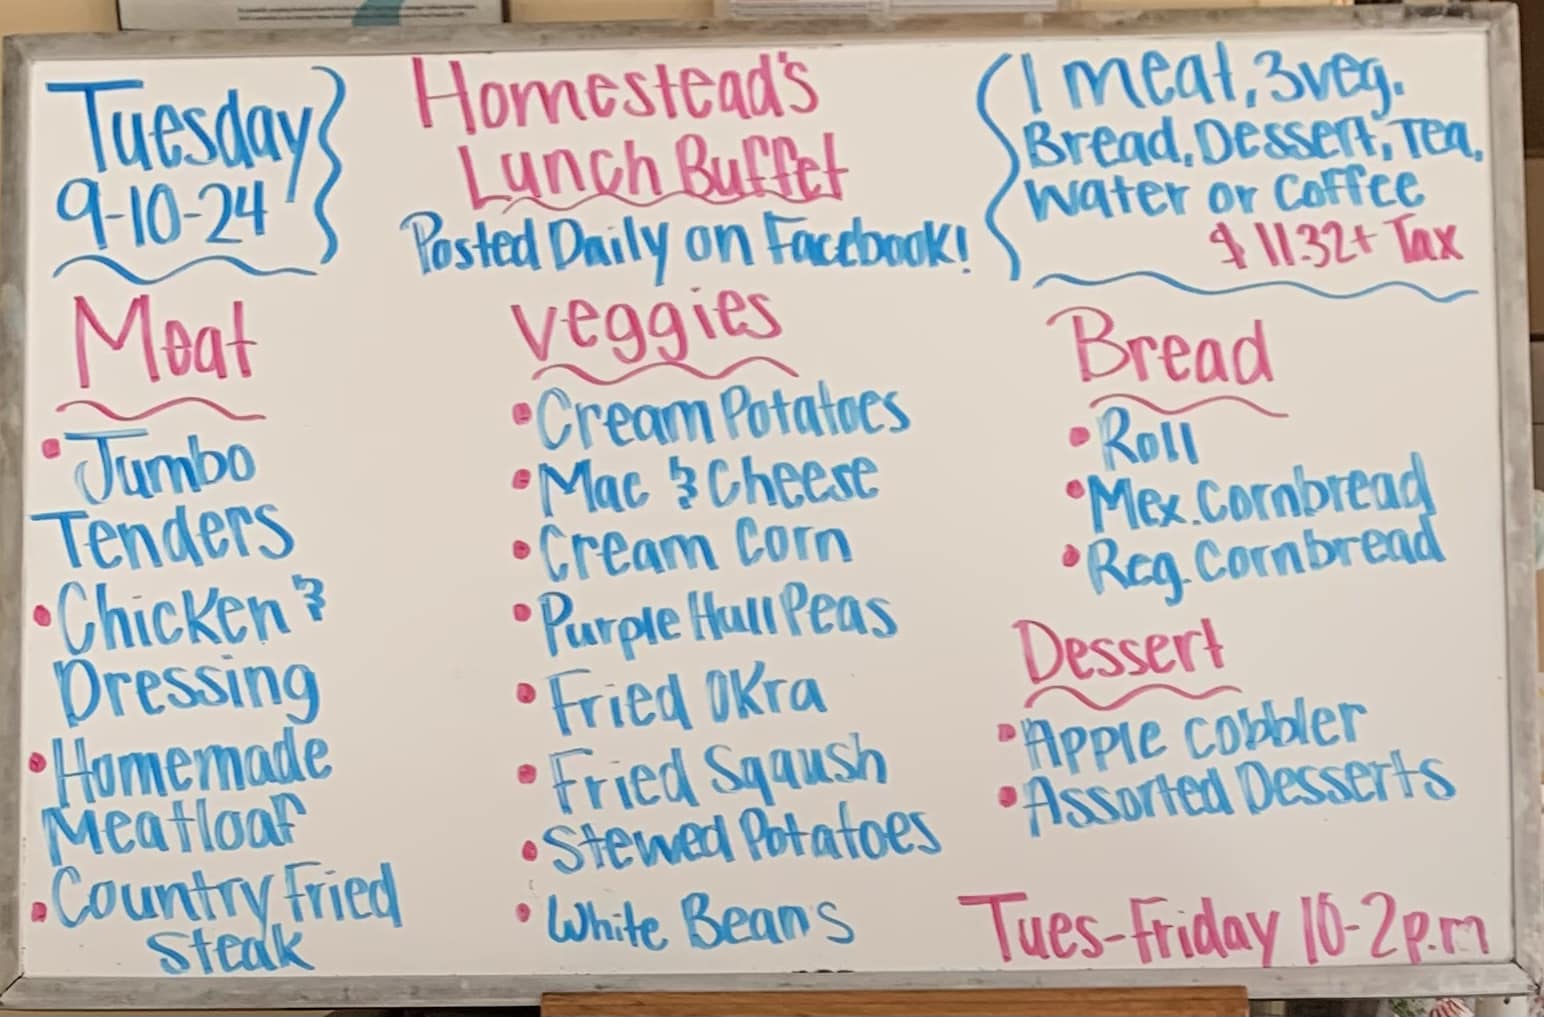 Tuesday
9-10-24
Homestead's
Lunch Buffet
Posted Daily on Facebook!
1 meat, 3 veg.
Bread, Dessert, Tea,
Water or Coffee
$ 11.32 + Tax
Meat
• Jumbo
Tenders
• Chicken &
Dressing
• Homemade
Meatloaf
• Country Fried
Steak
Veggies
• Cream Potatoes
• Mac & Cheese
• Cream Corn
• Purple Hull Peas
• Fried Okra
• Fried Sqaush
• Stewed Potatoes
• White Beans
Bread
• Roll
• Mex. Cornbread
• Reg. Cornbread
Dessert
• Apple cobbler
• Assorted Desserts
Tues-Friday 10-2p.m